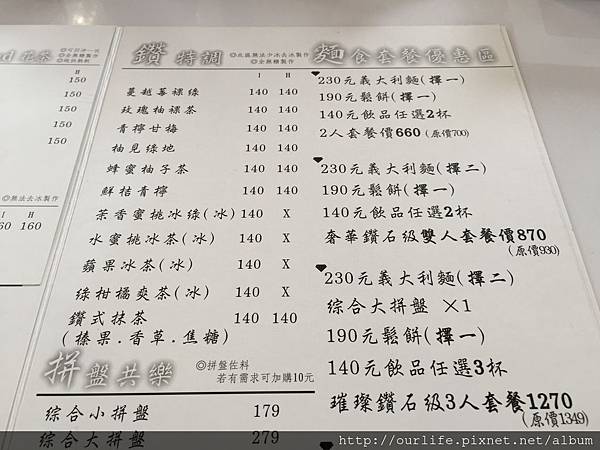 花茶
◎可回沖一次
◎全無糖製作
H
150
150
150
150
150
◎無法去冰製作
I H
160 160
鑽 特調
◎此區無法少冰去冰製作
◎全無糖製作
I H
蔓越莓裸綠 140 140
玫瑰柚裸茶 140 140
青檸甘梅 140 140
柚見綠地 140 140
蜂蜜柚子茶 140 140
鮮桔青檸 140 140
茶香蜜桃冰綠(冰) 140 X
水蜜桃冰茶(冰) 140 X
蘋果冰茶(冰) 140 X
綠柑橘爽茶(冰) 140 X
鑽式抹茶 140 140
(榛果.香草.焦糖)
拼盤共樂
◎拼盤佐料
若有需求可加購10元
綜合小拼盤 179
綜合大拼盤 279
麵食套餐優惠區
230元義大利麵(擇一)
190元鬆餅(擇一)
140元飲品任選2杯
2人套餐價660 (原價700)
230元義大利麵(擇二)
190元鬆餅(擇一)
140元飲品任選2杯
奢華鑽石級雙人套餐價870
(原價930)
230元義大利麵(擇二)
綜合大拼盤 ×1
190元鬆餅(擇一)
140元飲品任選3杯
璀璨鑽石級3人套餐1270
(原價1349)
http://ourlife.pixnet.net/album